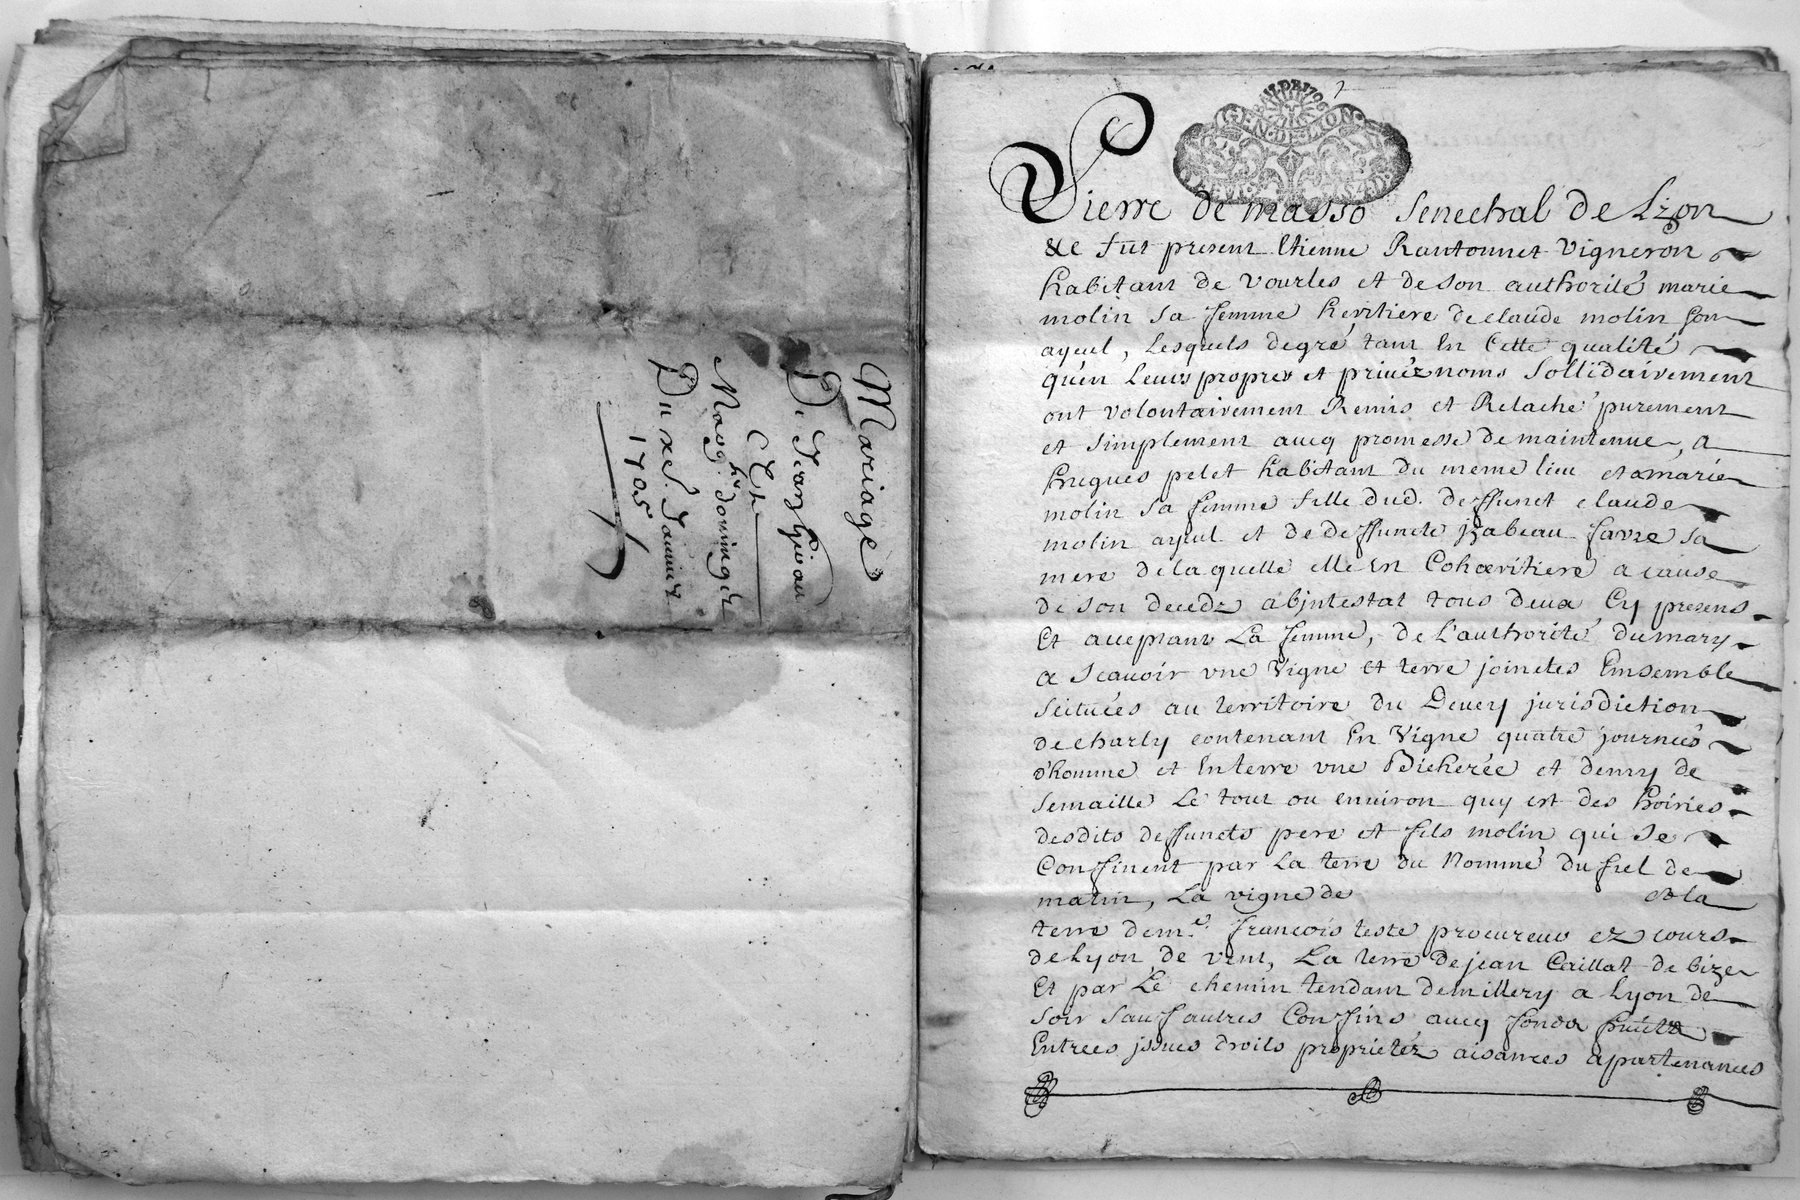 Mariage
De Jean Girau
Et
Marg.te
Du xe. Januier
1705
GEN·DE·LYON
Pierre de masso Senechal de Lyon
&c fut present Etienne Rantonnet Vigneron
habitant de Vourles et de son authorité marie
molin sa femme heritiere de claude molin son
ayeul, Lesquels degré tant En Cette qualité
quen Leurs propres et priuéz noms Sollidairement
ont volontairement Remis et Relaché purement
et simplement aueq promesse de maintenue, a
hugues pelet habitant du meme lieu et a marie
molin sa femme fille dud. deffunct claude
molin ayeul et de deffuncte jzabeau favre sa
mere de la quelle elle Est Cohoeritiere a cause
de son decedz abjntestat tous deux Cy presens
Et acceptant La femme, de L'authorité du mary
a Scauoir vne Vigne et terre joinctes Ensemble
Scituées au territoire du Deuey jurisdiction
de charly contenant En Vigne quatre journeés
d'homme et En terre vne Bicherée et demy de
Semaille Le tout ou enuiron quy est des hoiries
desdits deffuncts pere et fils molin qui Se
Confinent par La terre du Nommé du fiel de
matin, La vigne de et la
terre de m.e françois teste procureur ez cours
de Lyon de vent, La terre de jean Caillat de bize
Et par Le chemin tendant de millery a Lyon de
Soir Sauf autres Confins aueq fonds
Entrées jssues droits proprietéz aisances appartenances